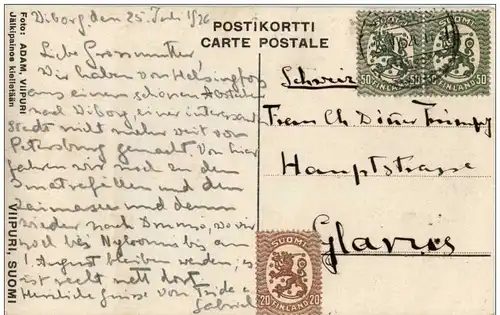 POSTIKORTTI
CARTE POSTALE
Foto: ADAM, VIIPURI
Jälkipainos kielletään
VIIPURI, SUOMI
Viborg, den 25. Juli 1926
Liebe Grossmutter!
Wir haben von Helsingfors
aus einen schönen Abstecher
nach Viborg, einer interess.
Stadt nicht mehr weit von
Petersburg gemacht. Von hier
fahren wir noch zu den
Imatrafällen und dem
Saimasee und dann
wieder nach, wo wir
noch bis bis am
1. August bleiben werden, es
ist recht nett dort.
Herzliche Grüsse von Fride &
Gabriel
Schweiz
Hauptstrasse
Glarus
SUOMI
50 50
FINLAND
SUOMI
50 50
FINLAND
SUOMI
20 20
FINLAND